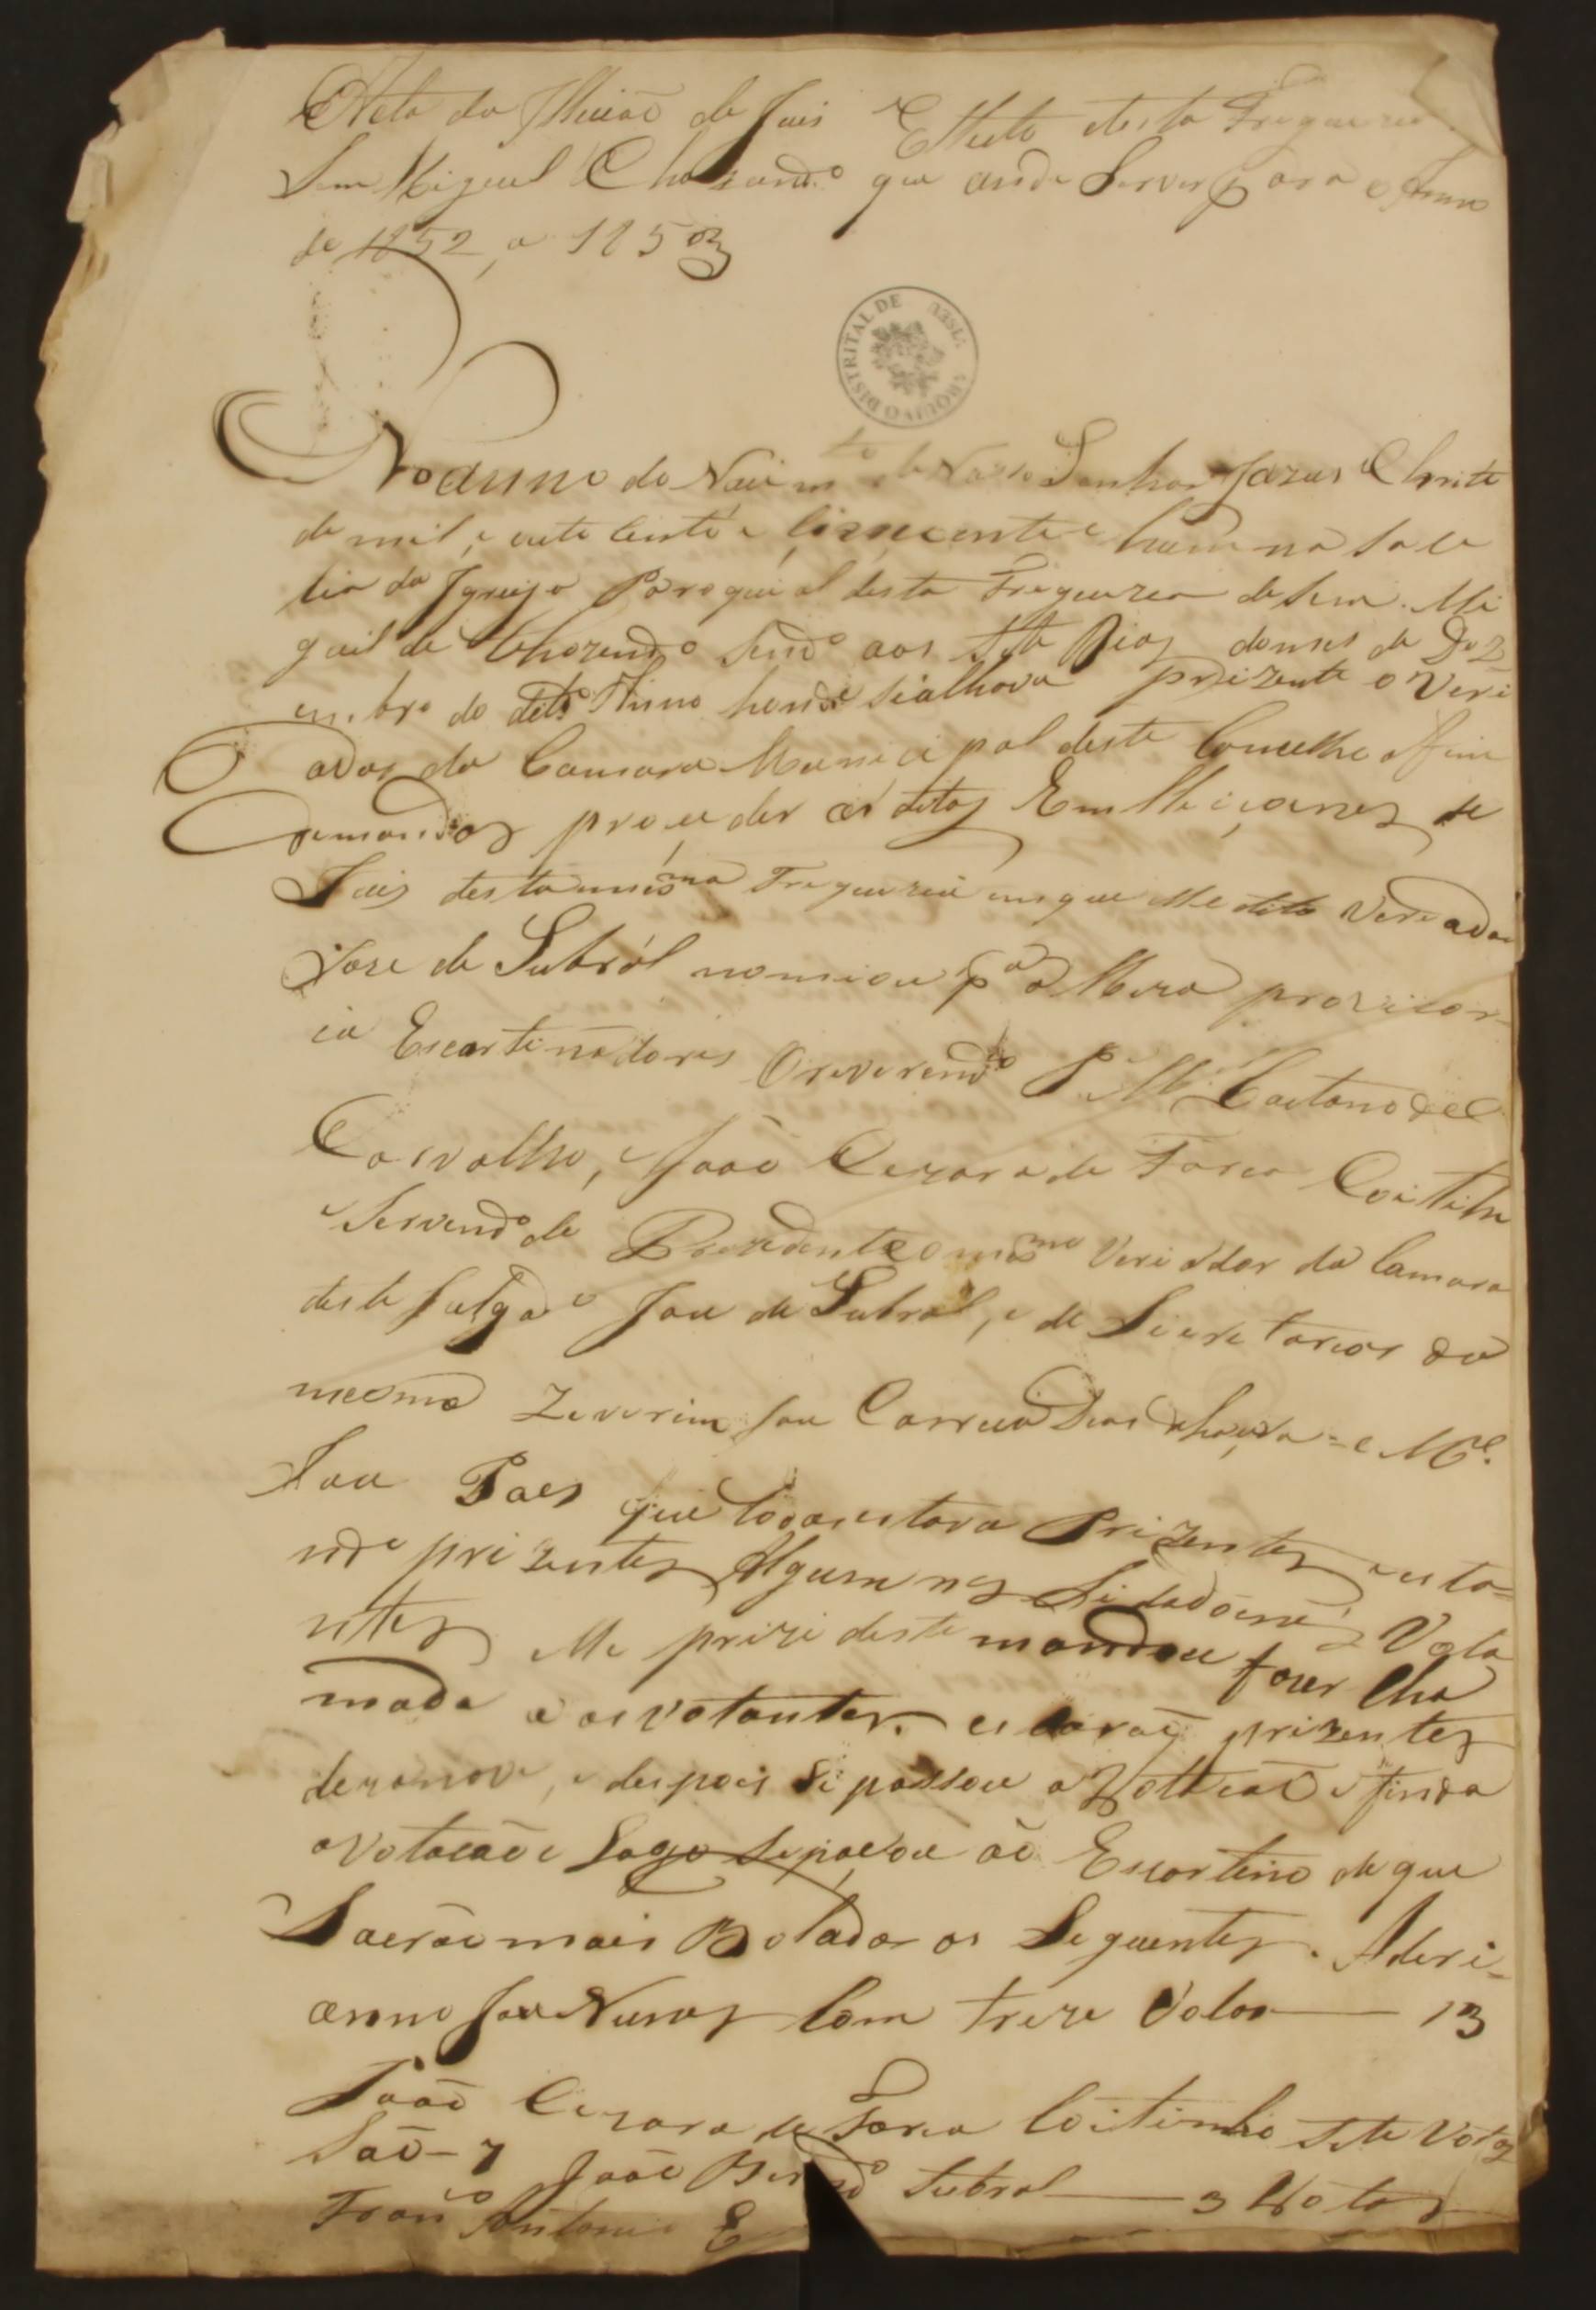 Acta da Illeicaõ de Juis Elleto desta Freguezia
Sam Miguel Chozendo que ande Server para o Anno
de 1852, a 1853
ARQUIVO DISTRITAL DE VISEU
No anno do Nacim.to de Nosso Senhor Jezus Christe
de mil, e oute cento e cincoente e hum na Sacr
tia da Igreija Paroquial desta Freguezia de Sam Mi
guil de Chozendo Sendo aos Sete Dias do mes de Dez
embro do dito Anno honde sialhava prizente o Veri
ador da Camara Municipal deste Concelho Afim
demandar proceder as ditas Emlleicoenes de
Juis desta mesma Freguezia em que elle dito Veriador
Joze de Subral nomiou p.a a Meza provizor
ia Escortinadores O reverendo P. M.el Caetano de
Carvalho, e João Cezara de Faria Coitinho
Servendo de Prezidente o mesmo Veriador da Camara
deste Julgado Joze de Subral, e de Sicretarios da
mesma Zeverim Joze Correia Dias e M.el
Joze Paes que todos estava Prizentes e esta
ndo prizentes Algumnes Sidadoens Vota
ntes elle prizidente mandou fazer Cha
mada a os votantes. e estavaõ prizentes
dezanove, e despois si passou a Vottacaõ e finda
a Votacaõ e Logo se pacou aõ Escortino de que
Sacraõ mais Botados os Seguentes. Aderi-
anno Joze Nunes Com treze Votos — 13
Joaõ Cezara de Faria Coitinho Sete Votos
Saõ - 7 Joaõ Ber.do Subral — 3 Votos
Fran.co Antonio